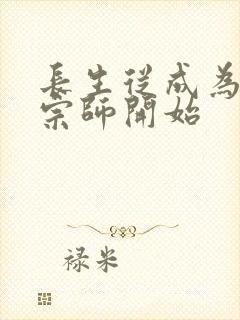 長生從成為
宗師開始
禄米